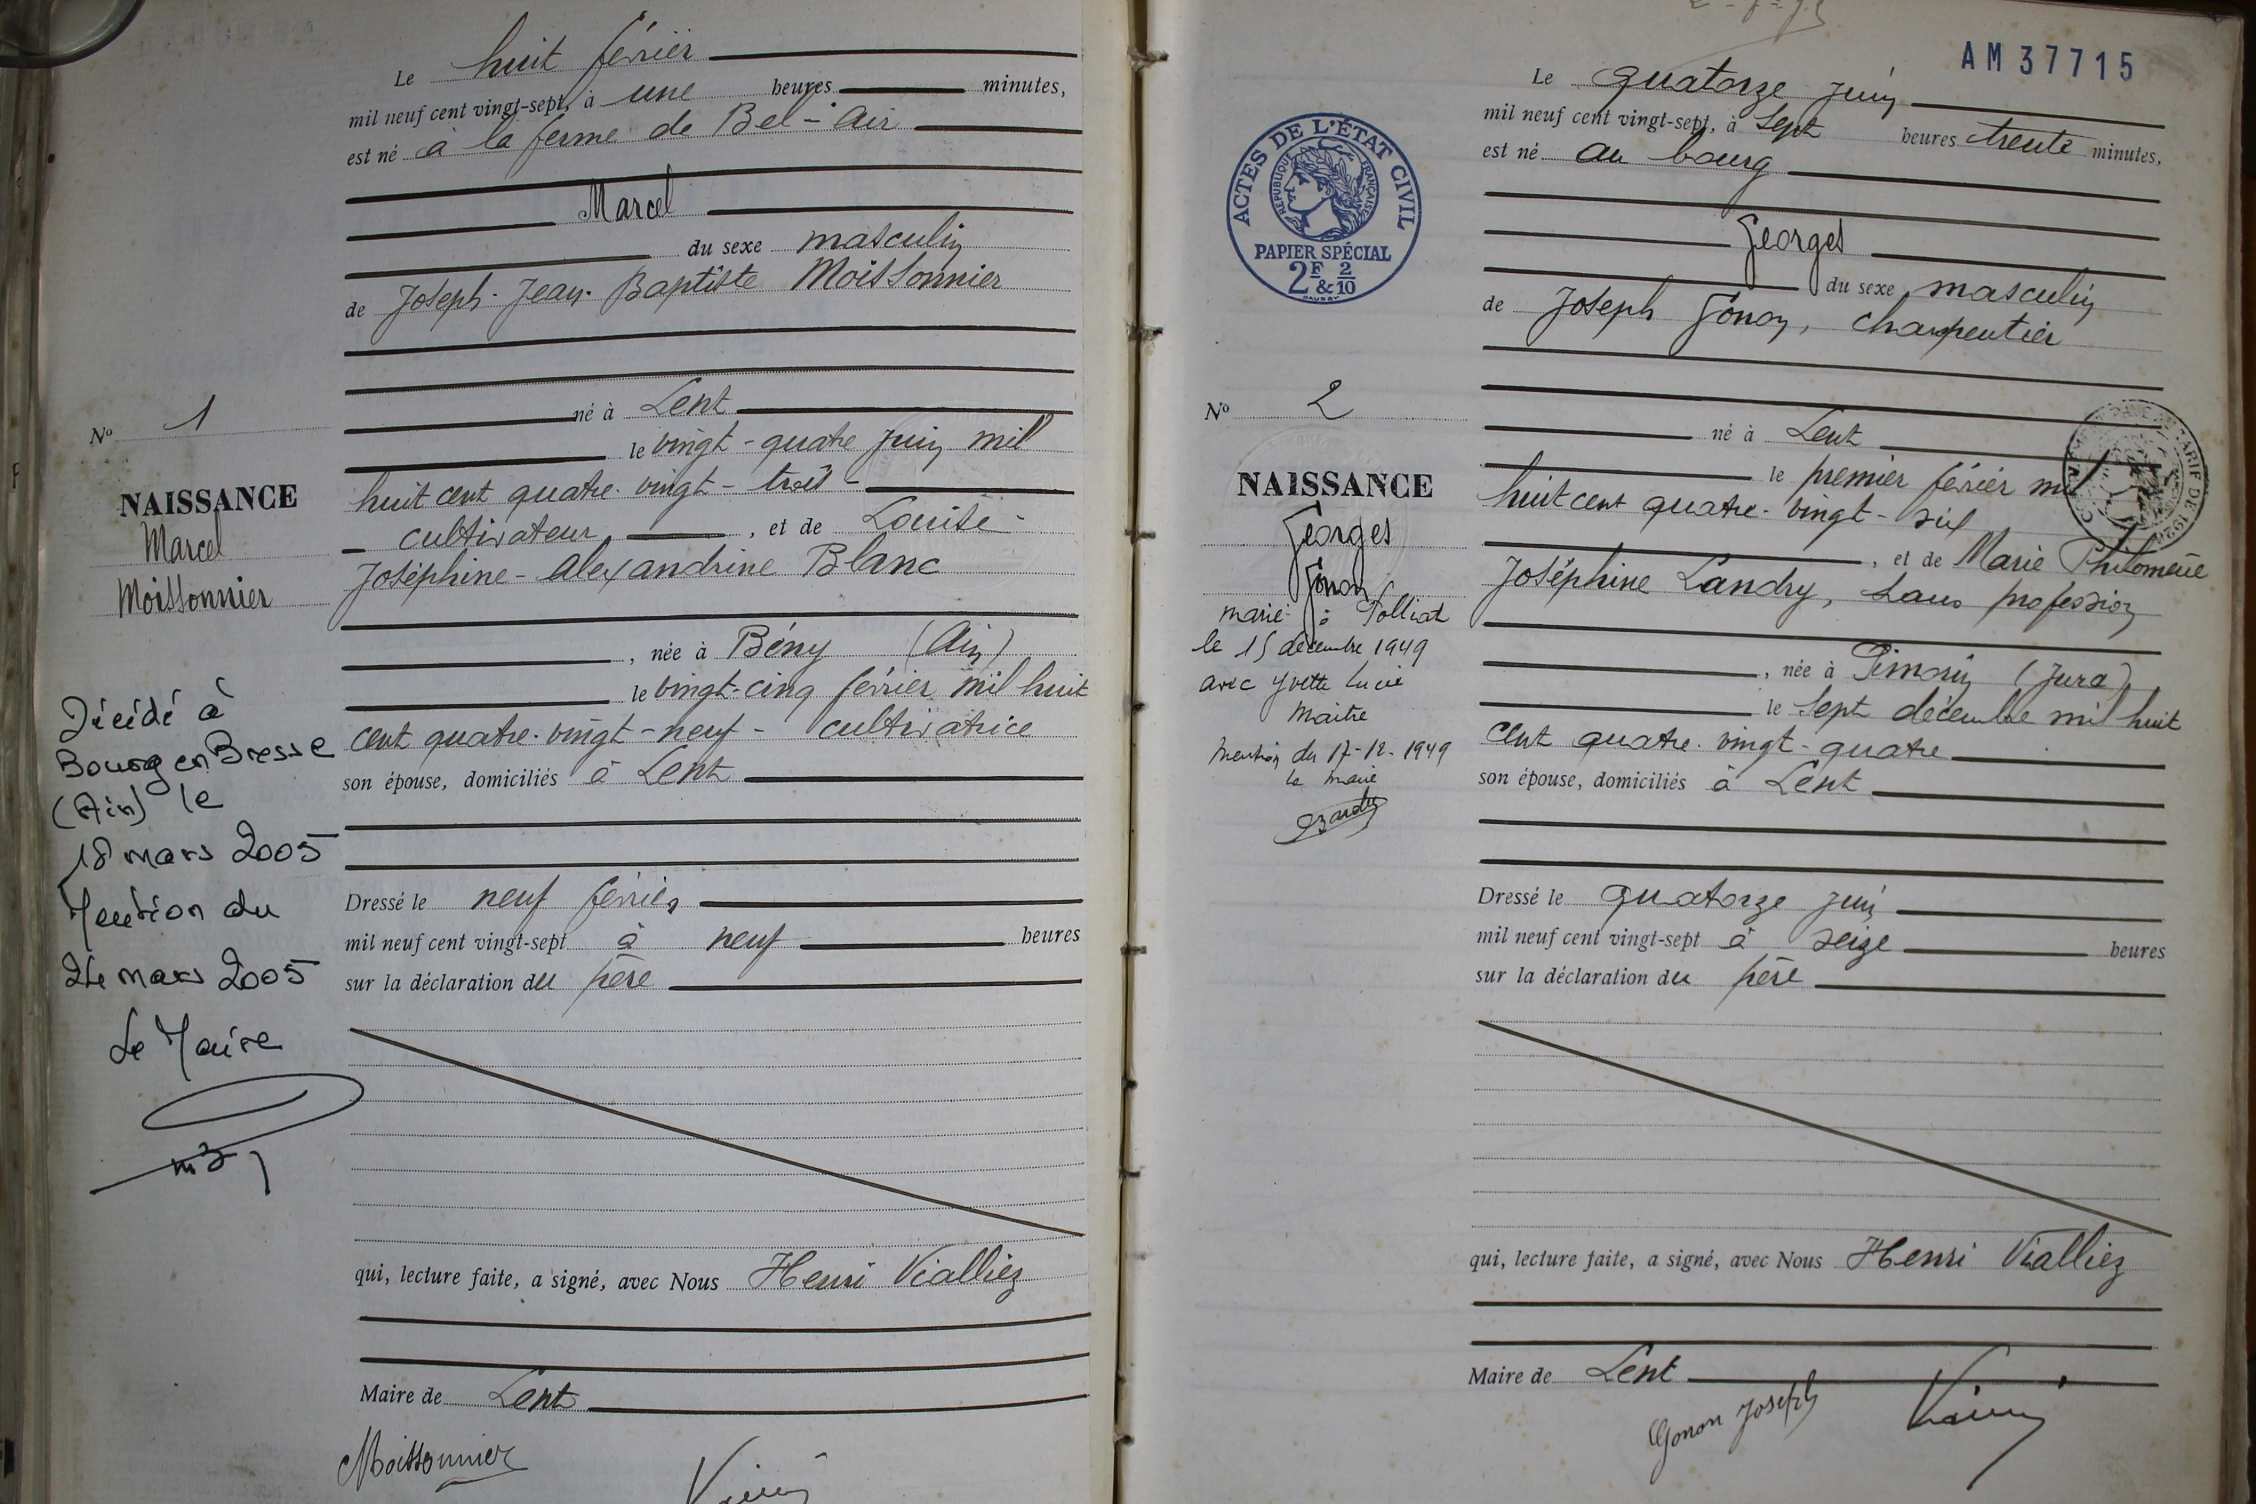 Le huit février
mil neuf cent vingt-sept, à une heures minutes,
est né à la ferme de Bel-Air
Marcel
du sexe masculin
de Joseph-Jean-Baptiste Moissonnier
né à Lent
le vingt-quatre juin mil
huit cent quatre-vingt-trois
cultivateur, et de Louise-
Joséphine-Alexandrine Blanc
, née à Bény (Ain)
le vingt-cinq février mil huit
cent quatre-vingt-neuf - cultivatrice
son épouse, domiciliés à Lent
Dressé le neuf février
mil neuf cent vingt-sept à neuf heures
sur la déclaration du père
qui, lecture faite, a signé, avec Nous Henri Vialliez
Maire de Lent
Moissonnier
No 1
NAISSANCE
Marcel
Moissonnier
Décédé à
Bourg en Bresse
(Ain) le
18 mars 2005
Mention du
24 mars 2005
Le Maire
AM37715
Le quatorze juin
mil neuf cent vingt-sept, à sept heures trente minutes,
est né au bourg
Georges
du sexe masculin
de Joseph Gonon, charpentier
né à Lent
le premier février mil
huit cent quatre-vingt-six
, et de Marie Philomène
Joséphine Landry, sans profession
, née à Pimorin (Jura)
le sept décembre mil huit
cent quatre-vingt-quatre
son épouse, domiciliés à Lent
Dressé le quatorze juin
mil neuf cent vingt-sept à seize heures
sur la déclaration du père
qui, lecture faite, a signé, avec Nous Henri Vialliez
Maire de Lent
Gonon Joseph
ACTES DE L'ÉTAT CIVIL
RÉPUBLIQUE FRANÇAISE
PAPIER SPÉCIAL
2F & 2/10
No 2
NAISSANCE
Georges
Gonon
marié à Polliat
le 15 décembre 1949
avec Yvette Lucie
Maitre
Mention du 17-12-1949
le maire